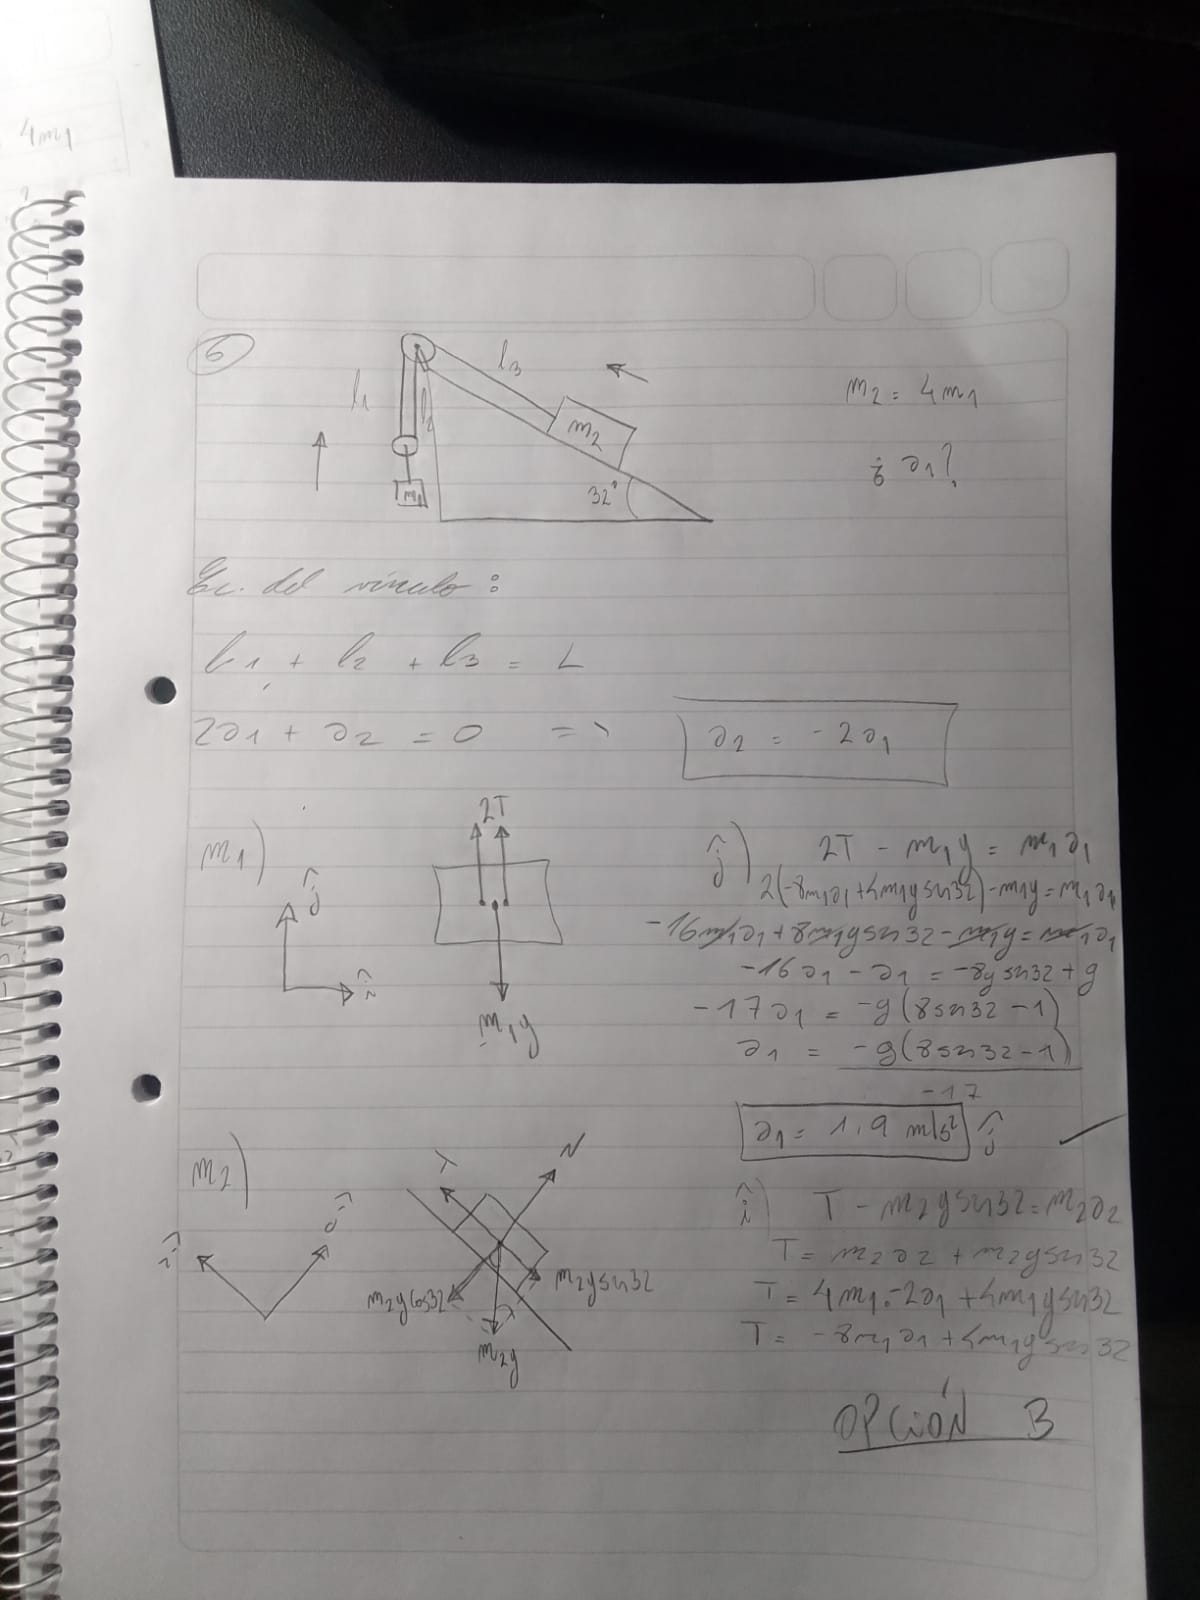 4m1
6
l1
l2
l3
m2
m1
32°
m2 = 4m1
¿ a1?
Ec. del vínculo :
l1 + l2 + l3 = L
2a1 + a2 = 0 =>
a2 = -2a1
m1)
ĵ
î
2T
m1g
ĵ) 2T - m1g = m1a1
2(-8m1a1+4m1g sen32)-m1g=m1a1
-16m1a1+8m1g sen32-m1g=m1a1
-16a1 - a1 = -8g sen32 + g
-17a1 = -g(8sen32 - 1)
a1 = -g(8sen32 - 1)
-17
a1 = 1,9 m/s² ĵ
m2)
î
ĵ
T
N
m2g cos32
m2g sen32
m2g
î) T - m2g sen32 = m2a2
T = m2a2 + m2g sen32
T = 4m1.-2a1 + 4m1g sen32
T = -8m1a1 + 4m1g sen32
OPCIÓN B